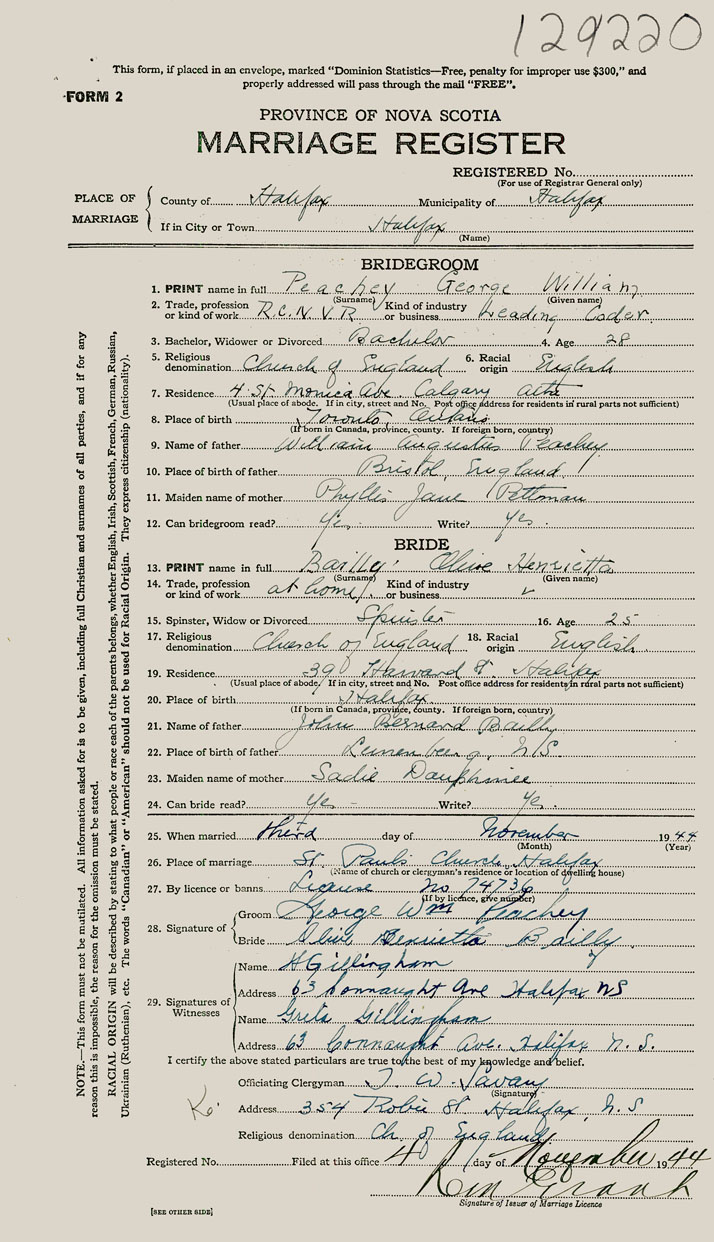 129220
This form, if placed in an envelope, marked "Dominion Statistics—Free, penalty for improper use $300," and
properly addressed will pass through the mail "FREE".
FORM 2
PROVINCE OF NOVA SCOTIA
MARRIAGE REGISTER
REGISTERED No.
(For use of Registrar General only)
PLACE OF MARRIAGE
County of Halifax Municipality of Halifax
If in City or Town Halifax
(Name)
BRIDEGROOM
1. PRINT name in full Peachey George William
(Surname) (Given name)
2. Trade, profession or kind of work R.C.N.V.R. Kind of industry or business Leading Coder.
3. Bachelor, Widower or Divorced Bachelor 4. Age 28
5. Religious denomination Church of England 6. Racial origin English
7. Residence 4 St. Monica Ave. Calgary Alta
(Usual place of abode. If in city, street and No. Post office address for residents in rural parts not sufficient)
8. Place of birth Toronto, Ontario
(If born in Canada, province, county. If foreign born, country)
9. Name of father William Augustus Peachey
10. Place of birth of father Bristol, England
11. Maiden name of mother Phyllis Jane
12. Can bridegroom read? Yes. Write? Yes.
BRIDE
13. PRINT name in full Bailly Olive Henrietta
(Surname) (Given name)
14. Trade, profession or kind of work at home Kind of industry or business
15. Spinster, Widow or Divorced Spinster 16. Age 25
17. Religious denomination Church of England 18. Racial origin English.
19. Residence 39 Harvard St. Halifax
(Usual place of abode. If in city, street and No. Post office address for residents in rural parts not sufficient)
20. Place of birth Halifax
(If born in Canada, province, county. If foreign born, country)
21. Name of father John Bernard Bailly
22. Place of birth of father Lunenberg, N.S
23. Maiden name of mother Sadie Dauphinee
24. Can bride read? Yes Write? Yes.
25. When married third day of November 1944
(Month) (Year)
26. Place of marriage St. Pauls Church, Halifax
(Name of church or clergyman's residence or location of dwelling house)
27. By licence or banns License No 74736
(If by licence, give number)
28. Signature of
Groom George Wm Peachey
Bride Olive Henrietta Bailly.
29. Signatures of Witnesses
Name H Gillingham
Address 63 Connaught Ave Halifax NS
Name Greta Gillingham
Address 63 Connaught Ave. Halifax N.S.
I certify the above stated particulars are true to the best of my knowledge and belief.
Officiating Clergyman T. W. Savary
(Signature)
Address 354 Robie St. Halifax, N.S
Religious denomination Ch. of England.
Registered No. Filed at this office 4 day of November 1944
Signature of Issuer of Marriage Licence
[SEE OTHER SIDE]
NOTE.—This form must not be mutilated. All information asked for is to be given, including full Christian and surnames of all parties, and if for any
reason this is impossible, the reason for the omission must be stated.
RACIAL ORIGIN will be described by stating to what people or race each of the parents belongs, whether English, Irish, Scottish, French, German, Russian,
Ukrainian (Ruthenian), etc. The words "Canadian" or "American" should not be used for Racial Origin. They express citizenship (nationality).